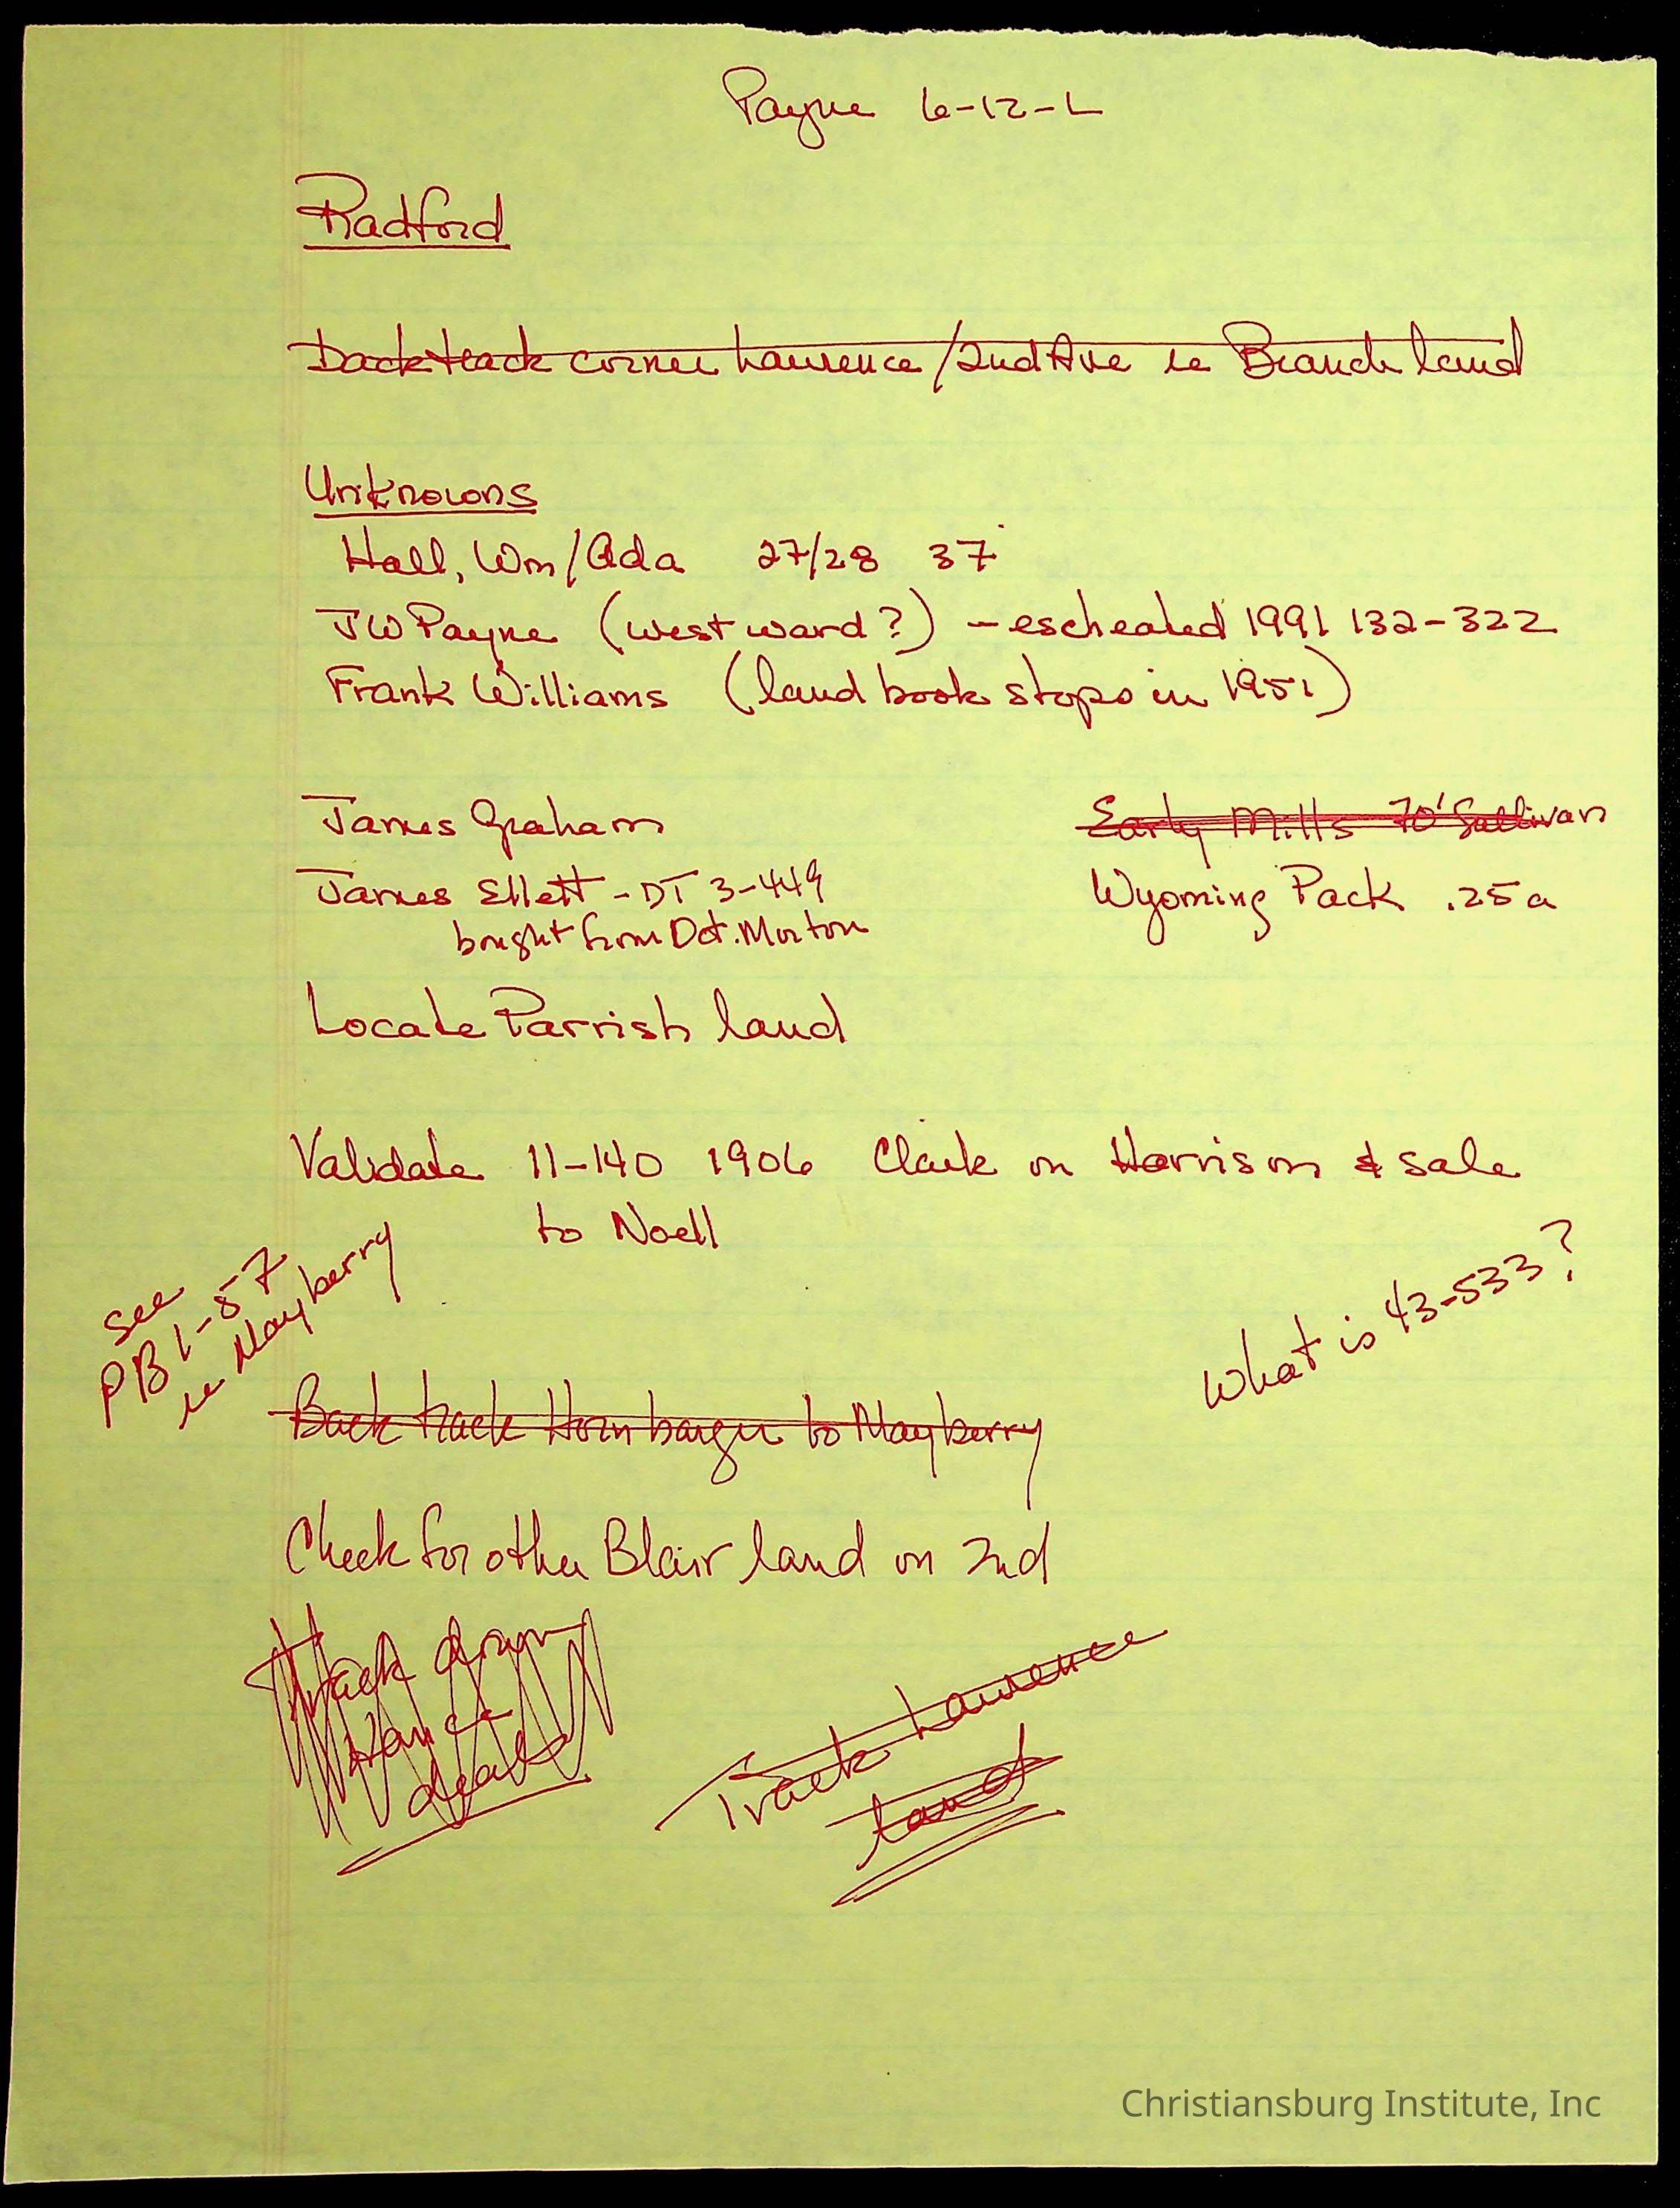 Payne 6-12-L
Radford
Backtrack corner Lawrence/2nd Ave re Branch land
Unknowns
Hall, Wm/Ada 27/28 37
JW Payne (west ward?) - escheated 1991 132-322
Frank Williams (land book stops in 1951)
James Graham
Early Mills 70' Sullivan
James Ellett - DT 3-449
Wyoming Pack .25a
bought from Dot. Morton
Locate Parrish land
Validate 11-140 1906 Clark on Harrison & sale
to Noell
see
PB 1-57
re Mayberry
What is 43-533?
Back track Hornbarger to Mayberry
Check for other Blair land on 2nd
Track down
Vance
deal
Track Lawrence
land
Christiansburg Institute, Inc